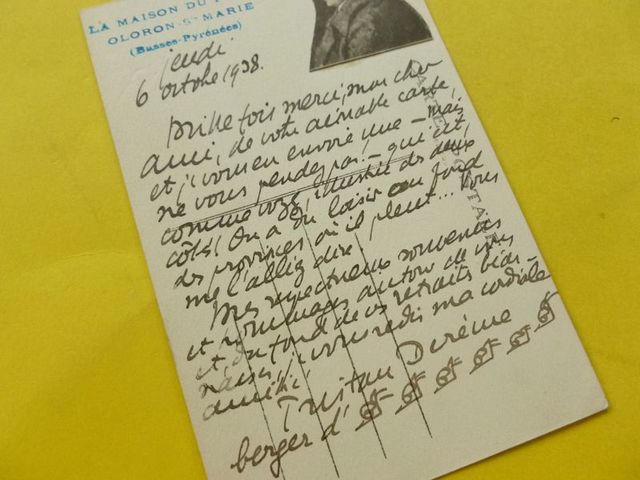 LA MAISON DU
OLORON-Ste-MARIE
(Basses-Pyrénées)
jeudi
6 octobre 1938.
Mille fois merci, mon cher
ami, de votre aimable carte,
et je vous en envoie une – mais
ne vous pendez pas ! – qui est,
comme vous le voyez, illustrée des deux
côtés ! On a du loisir au fond
des provinces où il pleut... Vous
me l'alliez dire
Mes respectueux souvenirs
et hommages autour de vous
et, du fond de ces retraits béar-
naises, je vous redis ma cordiale
amitié,
Tristan Derème
berger d'
CARTE POSTALE